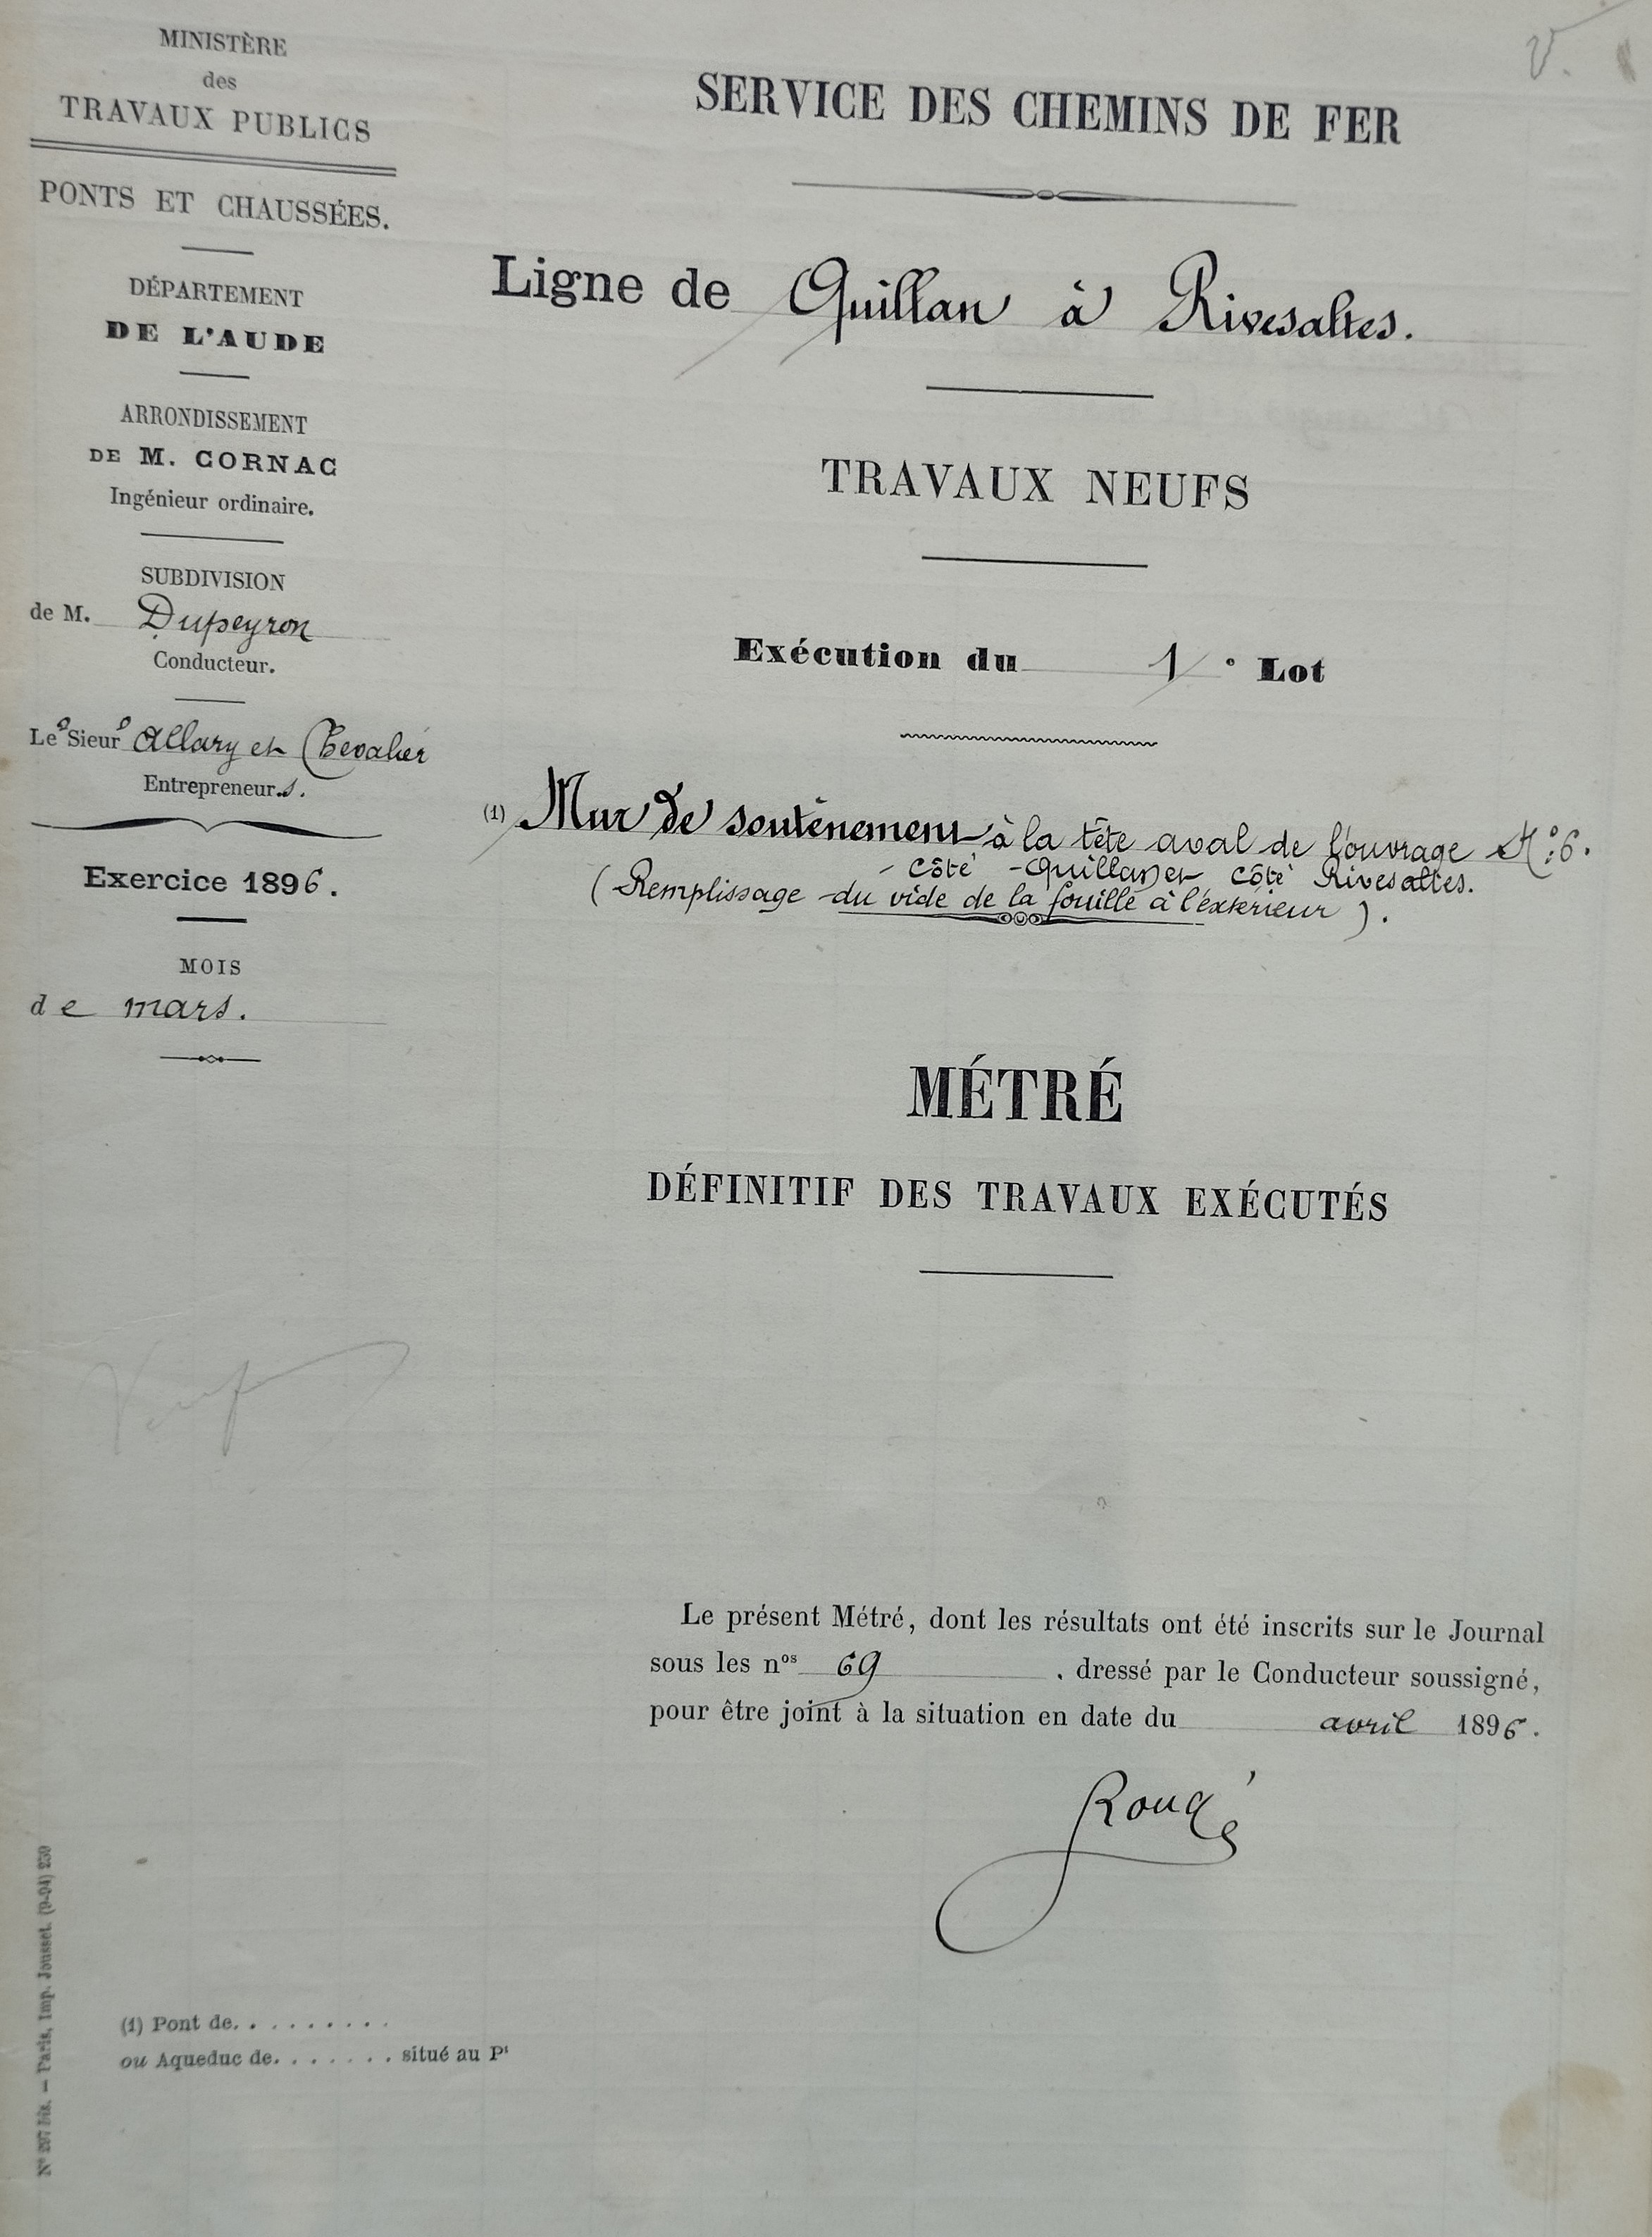 MINISTÈRE
des
TRAVAUX PUBLICS
PONTS ET CHAUSSÉES.
DÉPARTEMENT
DE L'AUDE
ARRONDISSEMENT
DE M. CORNAC
Ingénieur ordinaire.
SUBDIVISION
de M. Dupeyron
Conducteur.
Les Sieurs Allary et Chevalier
Entrepreneurs.
Exercice 1896.
MOIS
de mars.
V.
SERVICE DES CHEMINS DE FER
Ligne de Quillan à Rivesaltes.
TRAVAUX NEUFS
Exécution du 1° Lot
(1) Mur de soutènement à la tête aval de l'ouvrage N° 6.
- côté - Quillan et côté Rivesaltes.
(Remplissage du vide de la fouille à l'extérieur).
MÉTRÉ
DÉFINITIF DES TRAVAUX EXÉCUTÉS
Le présent Métré, dont les résultats ont été inscrits sur le Journal
sous les nos 69 . dressé par le Conducteur soussigné,
pour être joint à la situation en date du avril 1896.
Rougé
(1) Pont de. . . . . . . . .
ou Aqueduc de. . . . . . . situé au Pt
N° 297 bis. — Paris, Imp. Jousset. (9-94) 250